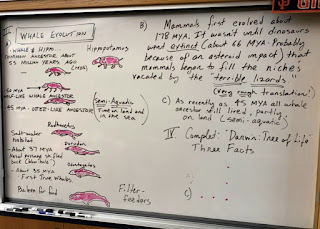 III WHALE EVOLUTION
- WHALE & HIPPO
COMMON ANCESTOR ABOUT
55 MILLION YEARS AGO
Hippopotamus
(MYA)
50 MYA
WHALE ANCESTOR
45 MYA - OTTER-LIKE ANCESTORS
(Semi-Aquatic)
Time on land and
in the sea
Rodhocetus
Salt-water
habitat
- About 37 MYA
Nasal passage shifted
back (blow hole)
Dorudon
- About 35 MYA
First True Whales
Baleen for food
Filter-
feeders
B) Mammals first evolved about
178 MYA. It wasn't until dinosaurs
went extinct (about 66 MYA. Probably
because of an asteroid impact) that
mammals began to fill the niches
vacated by the "terrible lizards"
(very rough translation!)
C) As recently as 45 MYA all whale
ancestors still lived, partly,
on land (semi-aquatic)
IV Complet: "Darwin: Tree of Life"
Three Facts
C)